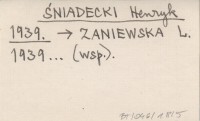 ŚNIADECKI Henryk
1939. → ZANIEWSKA L.
1939... (wsp.).